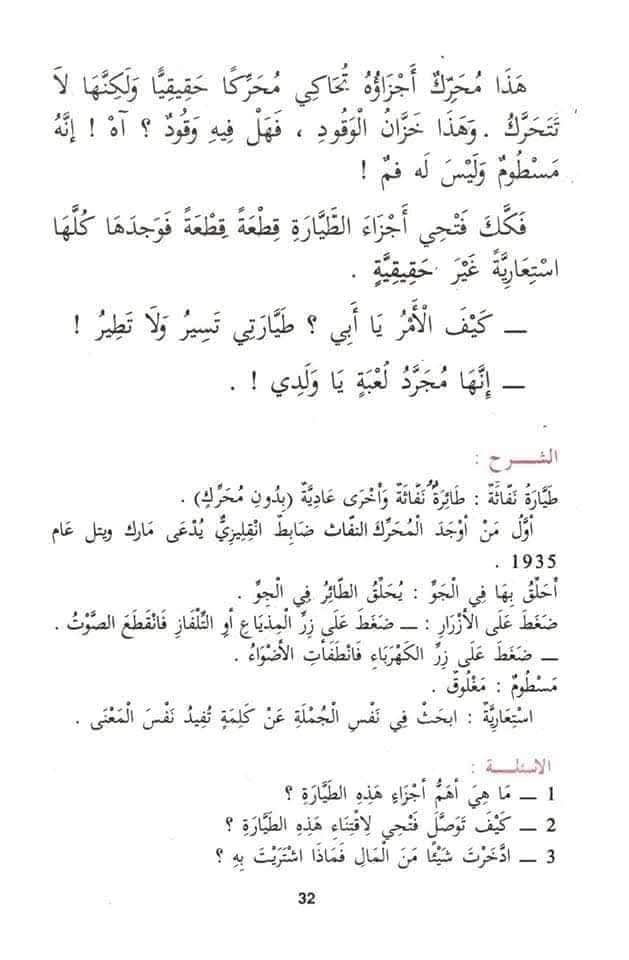 هَذَا مُحَرِّكٌ أَجْزَاؤُهُ تُحَاكِي مُحَرِّكًا حَقِيقِيًّا وَلَكِنَّهَا لاَ
تَتَحَرَّكُ . وَهَذَا خَزَّانُ الْوَقُودِ ، فَهَلْ فِيهِ وَقُودٌ ؟ آهْ ! إِنَّهُ
مَسْطُومٌ وَلَيْسَ لَه فمٌ !
فَكَّكَ فَتْحِي أَجْزَاءَ الطَّيَّارَةِ قِطْعَةً قِطْعَةً فَوَجَدَهَا كُلَّهَا
اسْتِعَارِيَّةً غَيْرَ حَقِيقِيَّةٍ .
ــ كَيْفَ الْأَمْرُ يَا أَبِي ؟ طَيَّارَتِي تَسِيرُ وَلاَ تَطِيرُ !
ــ إِنَّهَا مُجَرَّدُ لُعْبَةٍ يَا وَلَدِي ! .
الشـــرح :
طَيَّارَةُ نَفَّاثَةٌ : طَائِرَةٌ نَفَّاثَةٌ وَأخْرَى عَادِيَّةٌ (بِدُونِ مُحَرِّكٍ) .
أوَّلُ مَنْ أوْجَدَ الْمُحَرِّكَ النفّاث ضَابِطٌ انْقِلِيزِيٌّ يُدْعَى مَارك ويتل عَام
1935 .
أحَلِّقُ بِهَا فِي الْجَوِّ : يُحَلِّقُ الطَّائِرُ فِي الْجِوِّ .
ضَغَطَ عَلَى الأزْرَارِ : ــ ضَغَطَ عَلَى زِرِّ الْمِذيَاعِ أوِ التِّلْفَازِ فَانْقَطَعَ الصَّوْتُ .
ــ ضَغَطَ عَلَى زِرِّ الكَهْرَبَاءِ فَانْطَفَأتِ الأضْوَاءُ .
مَسْطُومٌ : مَغْلُوقٌ .
اسْتِعَارِيَّةٌ : ابحَثْ فِي نَفْسِ الْجُمْلَةِ عَنْ كَلِمَةٍ تُفِيدُ نَفْسَ الْمَعْنَى .
الاسئلـــة :
1 ــ مَا هِيَ أهَمُّ أجْزَاءِ هَذِهِ الطَّيَّارَةِ ؟
2 ــ كَيْفَ تَوَصَّلَ فَتْحِي لِاقْتِنَاءِ هَذِهِ الطَّيَّارَةِ ؟
3 ــ ادَّخَرْتَ شَيْئًا مِنَ الْمَالِ فَمَاذَا اشْتَرَيْتَ بِهِ ؟
32